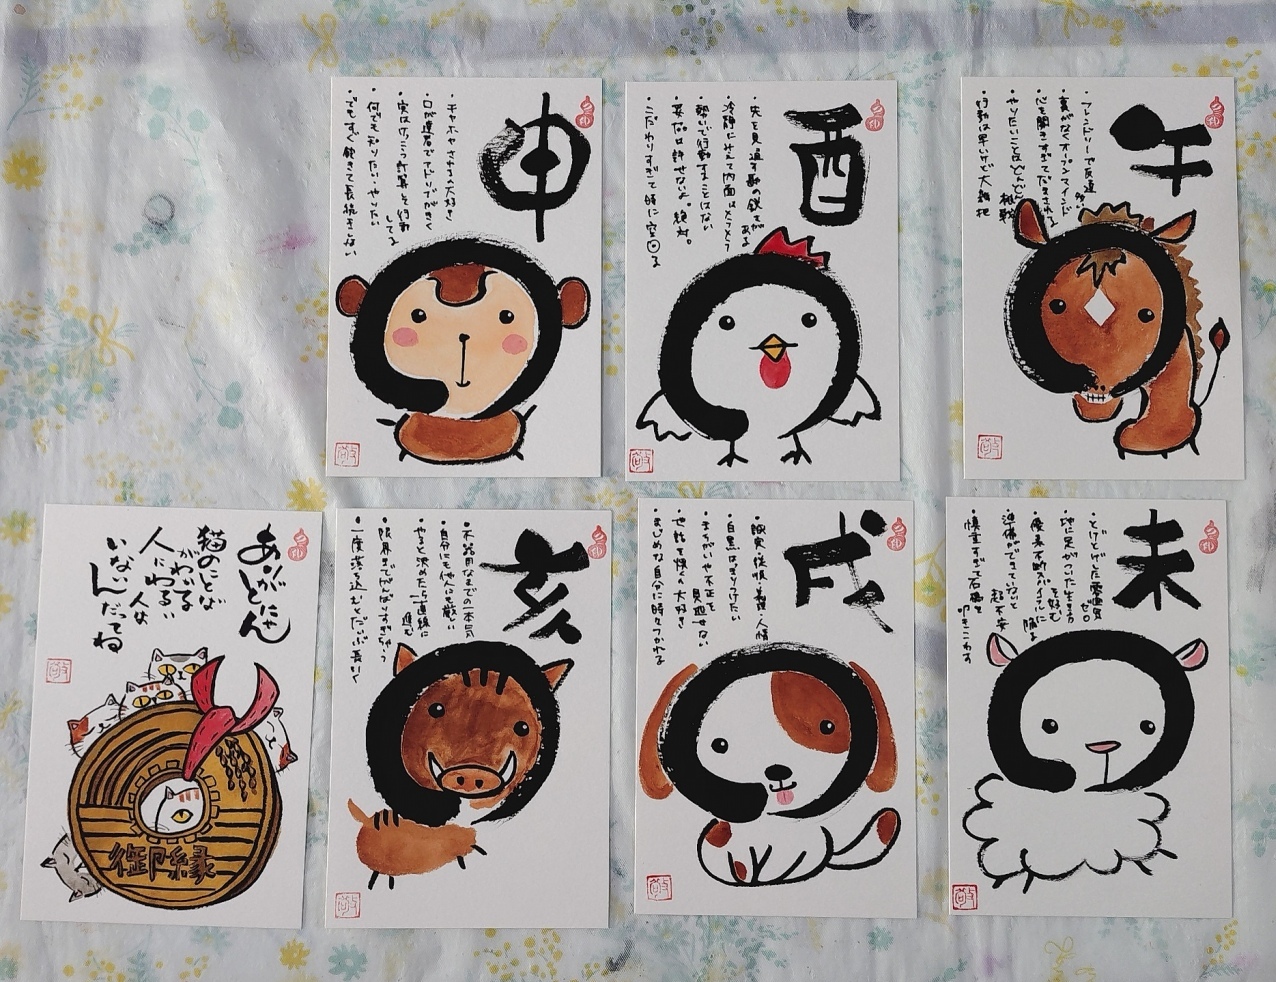 申
・チヤホヤされるの大好き
・口が達者でアドリブがきく
・実はけっこう計算して行動
してる
・何でも知りたい・やりたい
・でもすぐ飽きて長続きしない
酉
・先を見通す勘の鋭さが
ある
・冷静にみえて内面は
・勢いで行動することはない
・妥協は許せないよ。絶対。
・こだわりすぎて時に空回る
午
・フレンドリーで友達
多
・裏がなくオープンマインド
・心を開きすぎてだまされる
・やりたいことはどんどん
挑戦
・行動は早いけど大雑把
ありがとにゃん
猫のことが
わかる
人にわるい
人は
いないんだってね
御縁
亥
・不器用なまでの一本気
・自分にも他人にも厳しい
・やると決めたら一直線に
進む
・限界までがんばりすぎちゃう
・一度落ち込むとだいぶ長引く
戌
・誠実・従順・義理・人情
・白黒はっきりつけたい
・まちがいや不正を
見過せない
・世話を焼くの大好き
・まじめな自分に時々つかれる
未
・おっとりした雰囲気
・地に足がついた生き方
を好む
・優柔不断がハイレベルに
・準備ができていないと
超不安
・慎重すぎて石橋を
叩きこわす